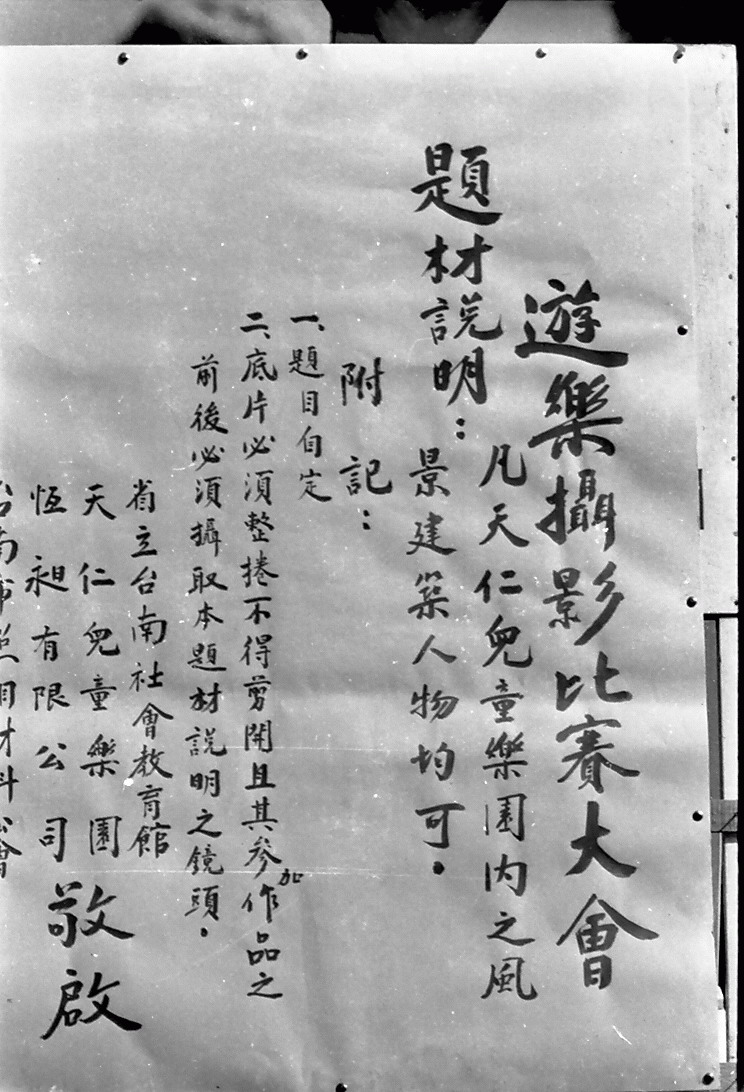 遊樂攝影比賽大會
題材説明：
凡天仁兒童樂園內之風
景建築人物均可。
附記：
一、題目自定
二、底片必須整捲不得剪開且其參加作品之
前後必須攝取本題材説明之鏡頭。
省立台南社會教育館
天仁兒童樂園
恆昶有限公司
台南市照相材料公會
敬啟